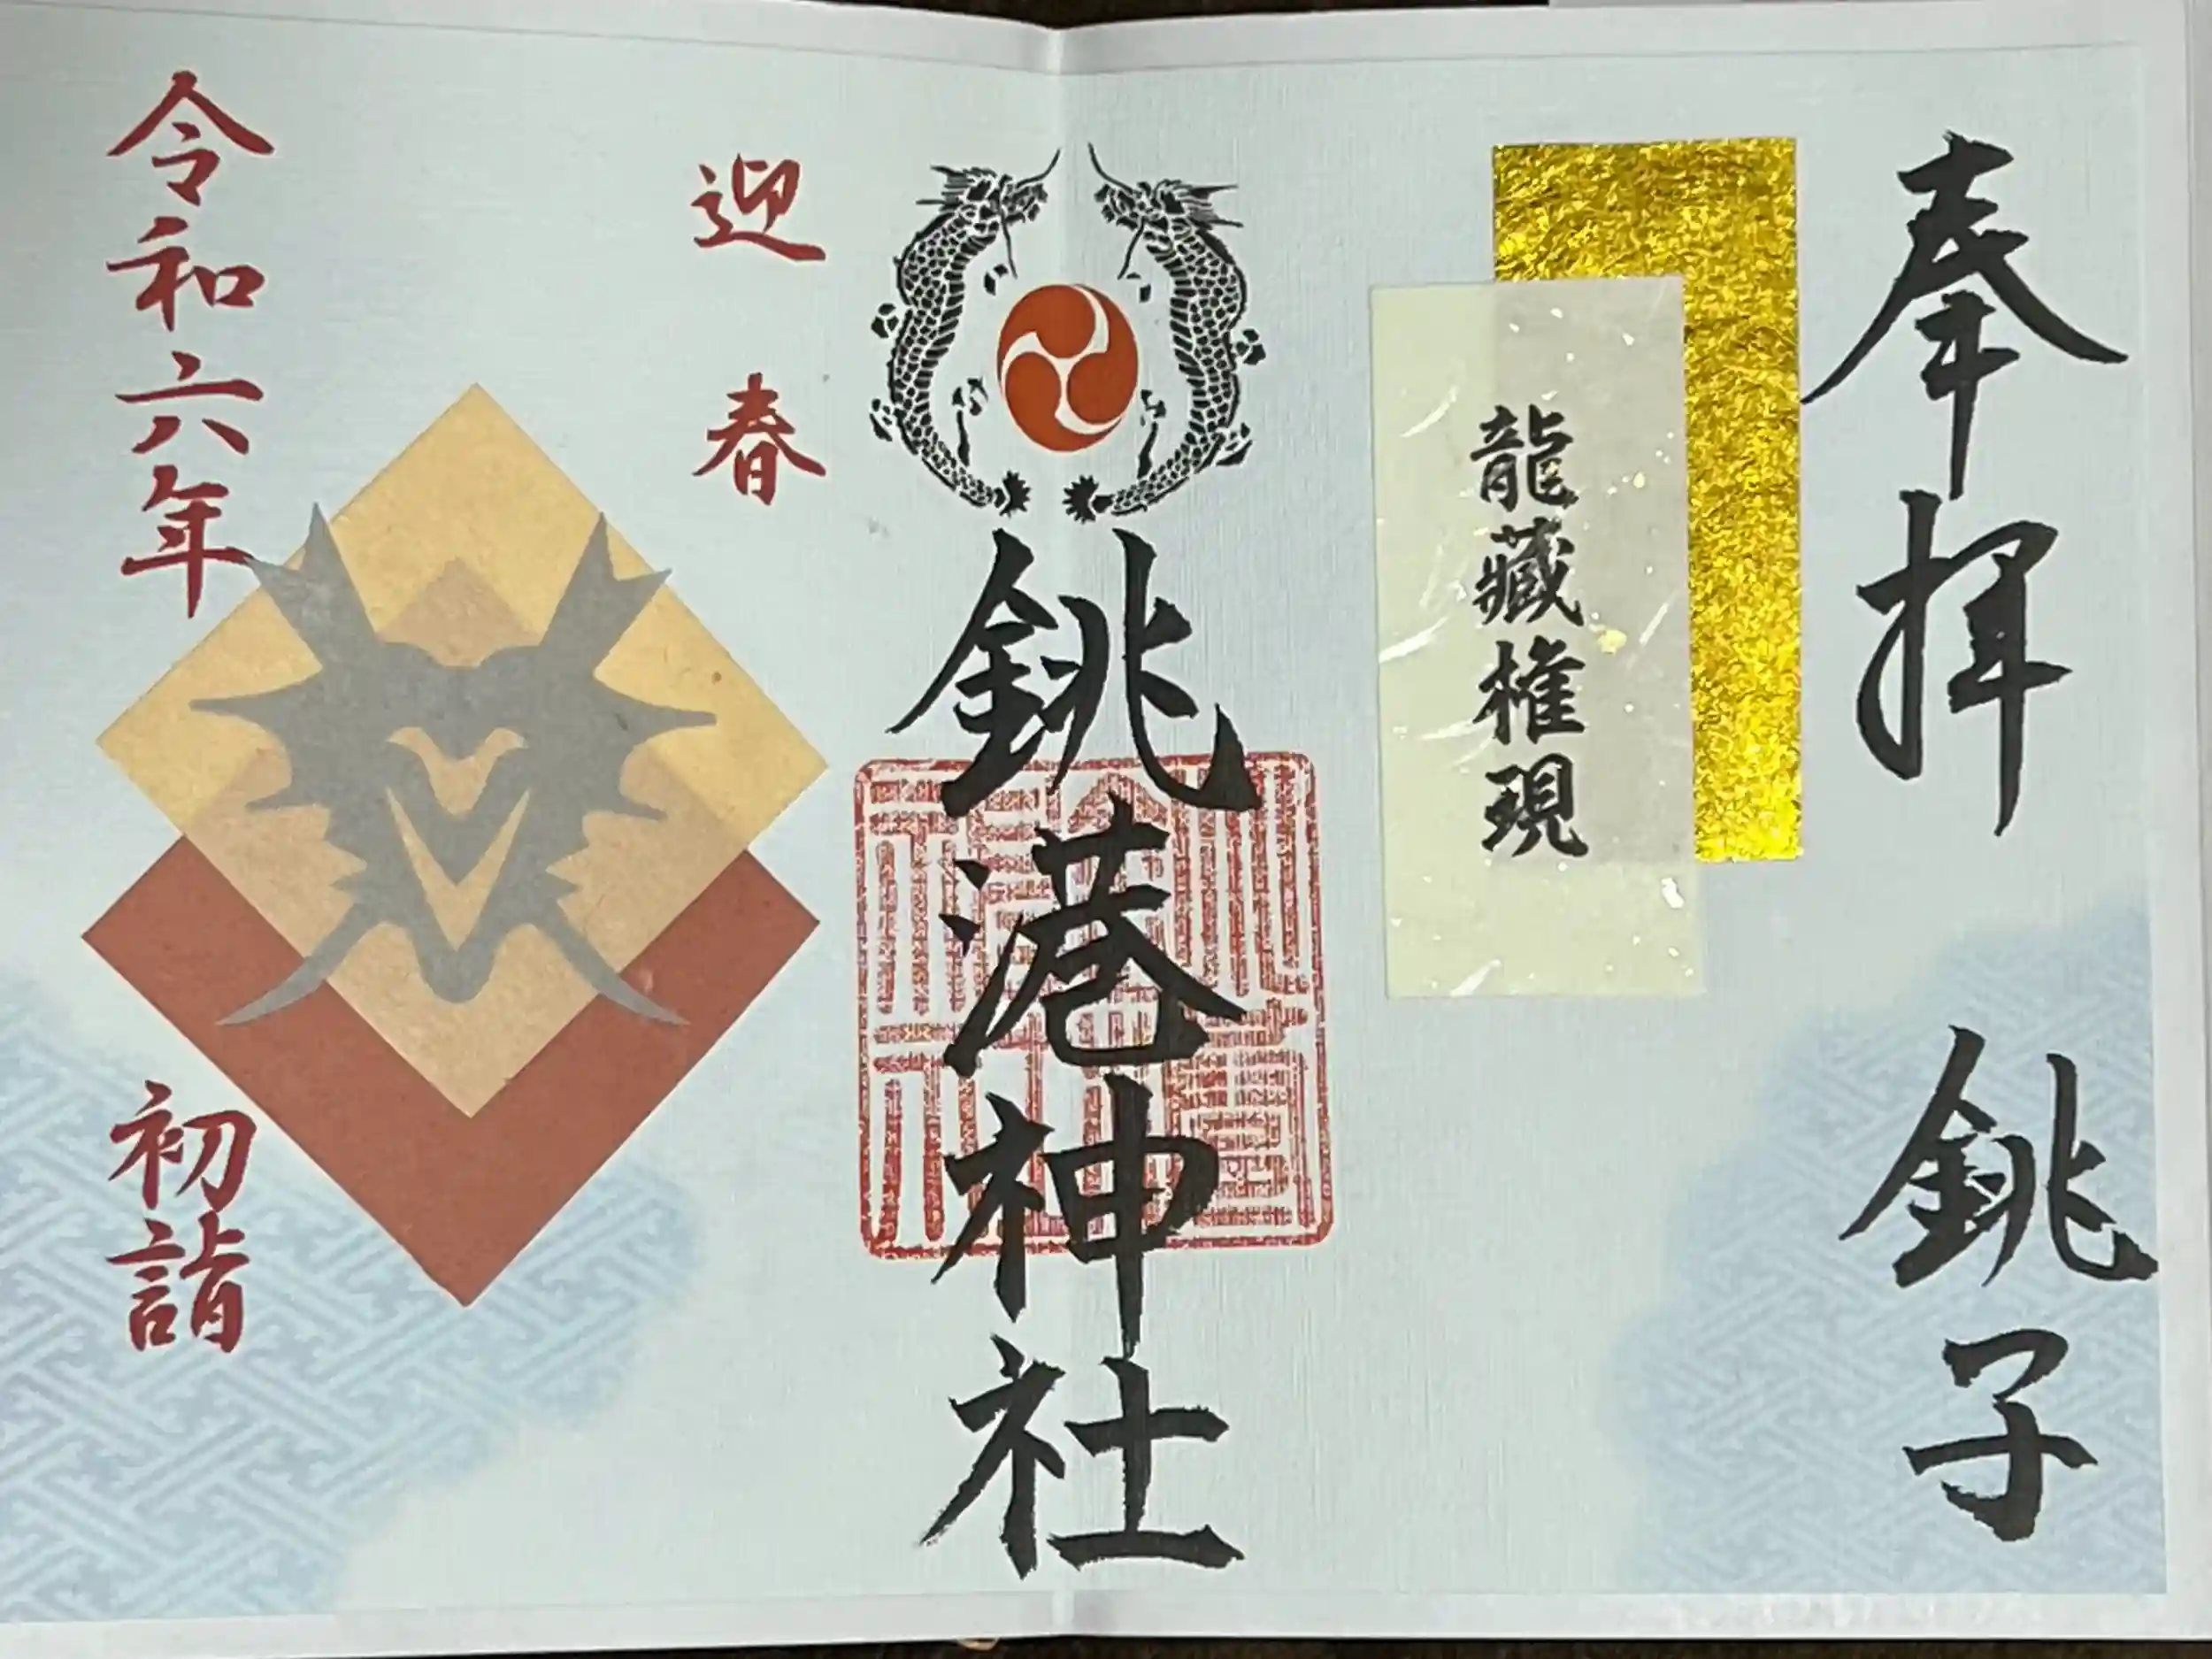 奉拝 銚子
龍藏権現
銚港神社
迎春
令和六年 初詣